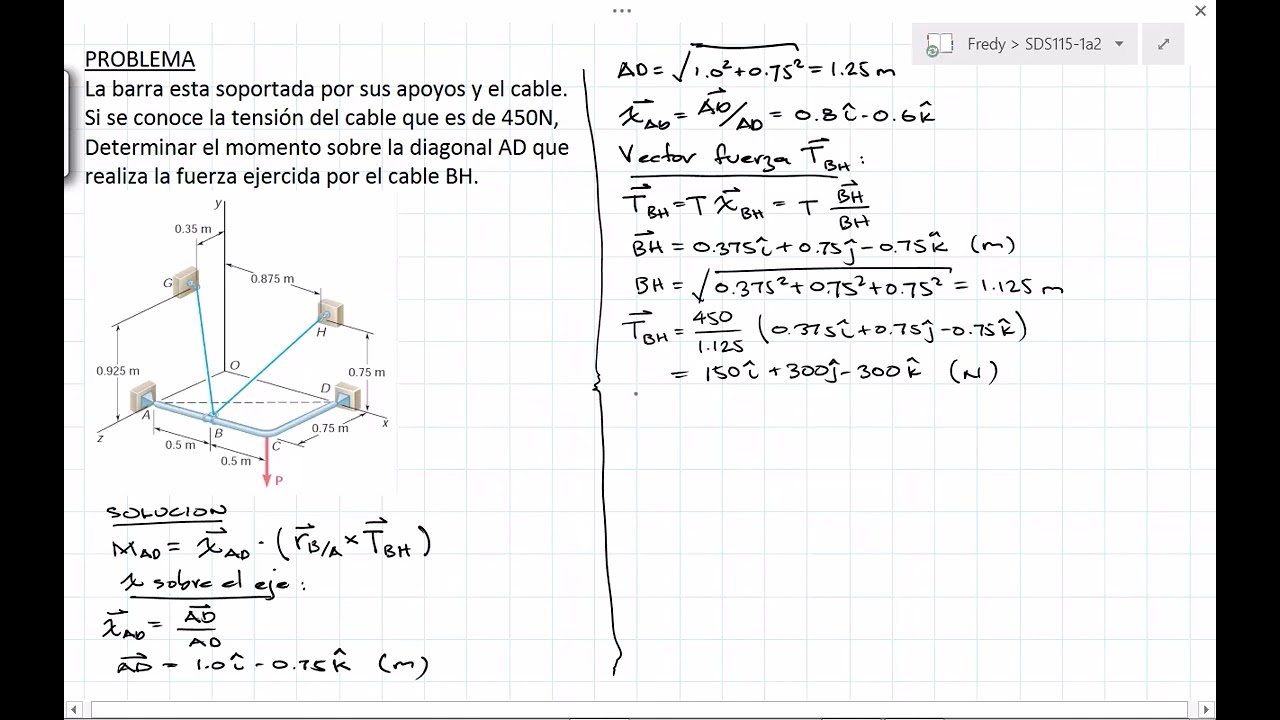 Fredy > SDS115-1a2
PROBLEMA
La barra esta soportada por sus apoyos y el cable.
Si se conoce la tensión del cable que es de 450N,
Determinar el momento sobre la diagonal AD que
realiza la fuerza ejercida por el cable BH.
y
0.35 m
G
0.875 m
H
0.925 m
O
0.75 m
D
A
x
z
B
0.75 m
0.5 m
C
0.5 m
P
SOLUCION
M_AD = λ⃗_AD · (r⃗_B/A × T⃗_BH)
λ sobre el eje :
λ⃗_AD = A⃗D⃗ / AD
A⃗D⃗ = 1.0î - 0.75k̂ (m)
AD = √(1.0² + 0.75²) = 1.25 m
λ⃗_AD = A⃗D⃗/AD = 0.8î - 0.6k̂
Vector fuerza T⃗_BH :
T⃗_BH = T λ⃗_BH = T B⃗H⃗ / BH
B⃗H⃗ = 0.375î + 0.75ĵ - 0.75k̂ (m)
BH = √(0.375² + 0.75² + 0.75²) = 1.125 m
T⃗_BH = 450 / 1.125 (0.375î + 0.75ĵ - 0.75k̂)
= 150î + 300ĵ - 300k̂ (N)